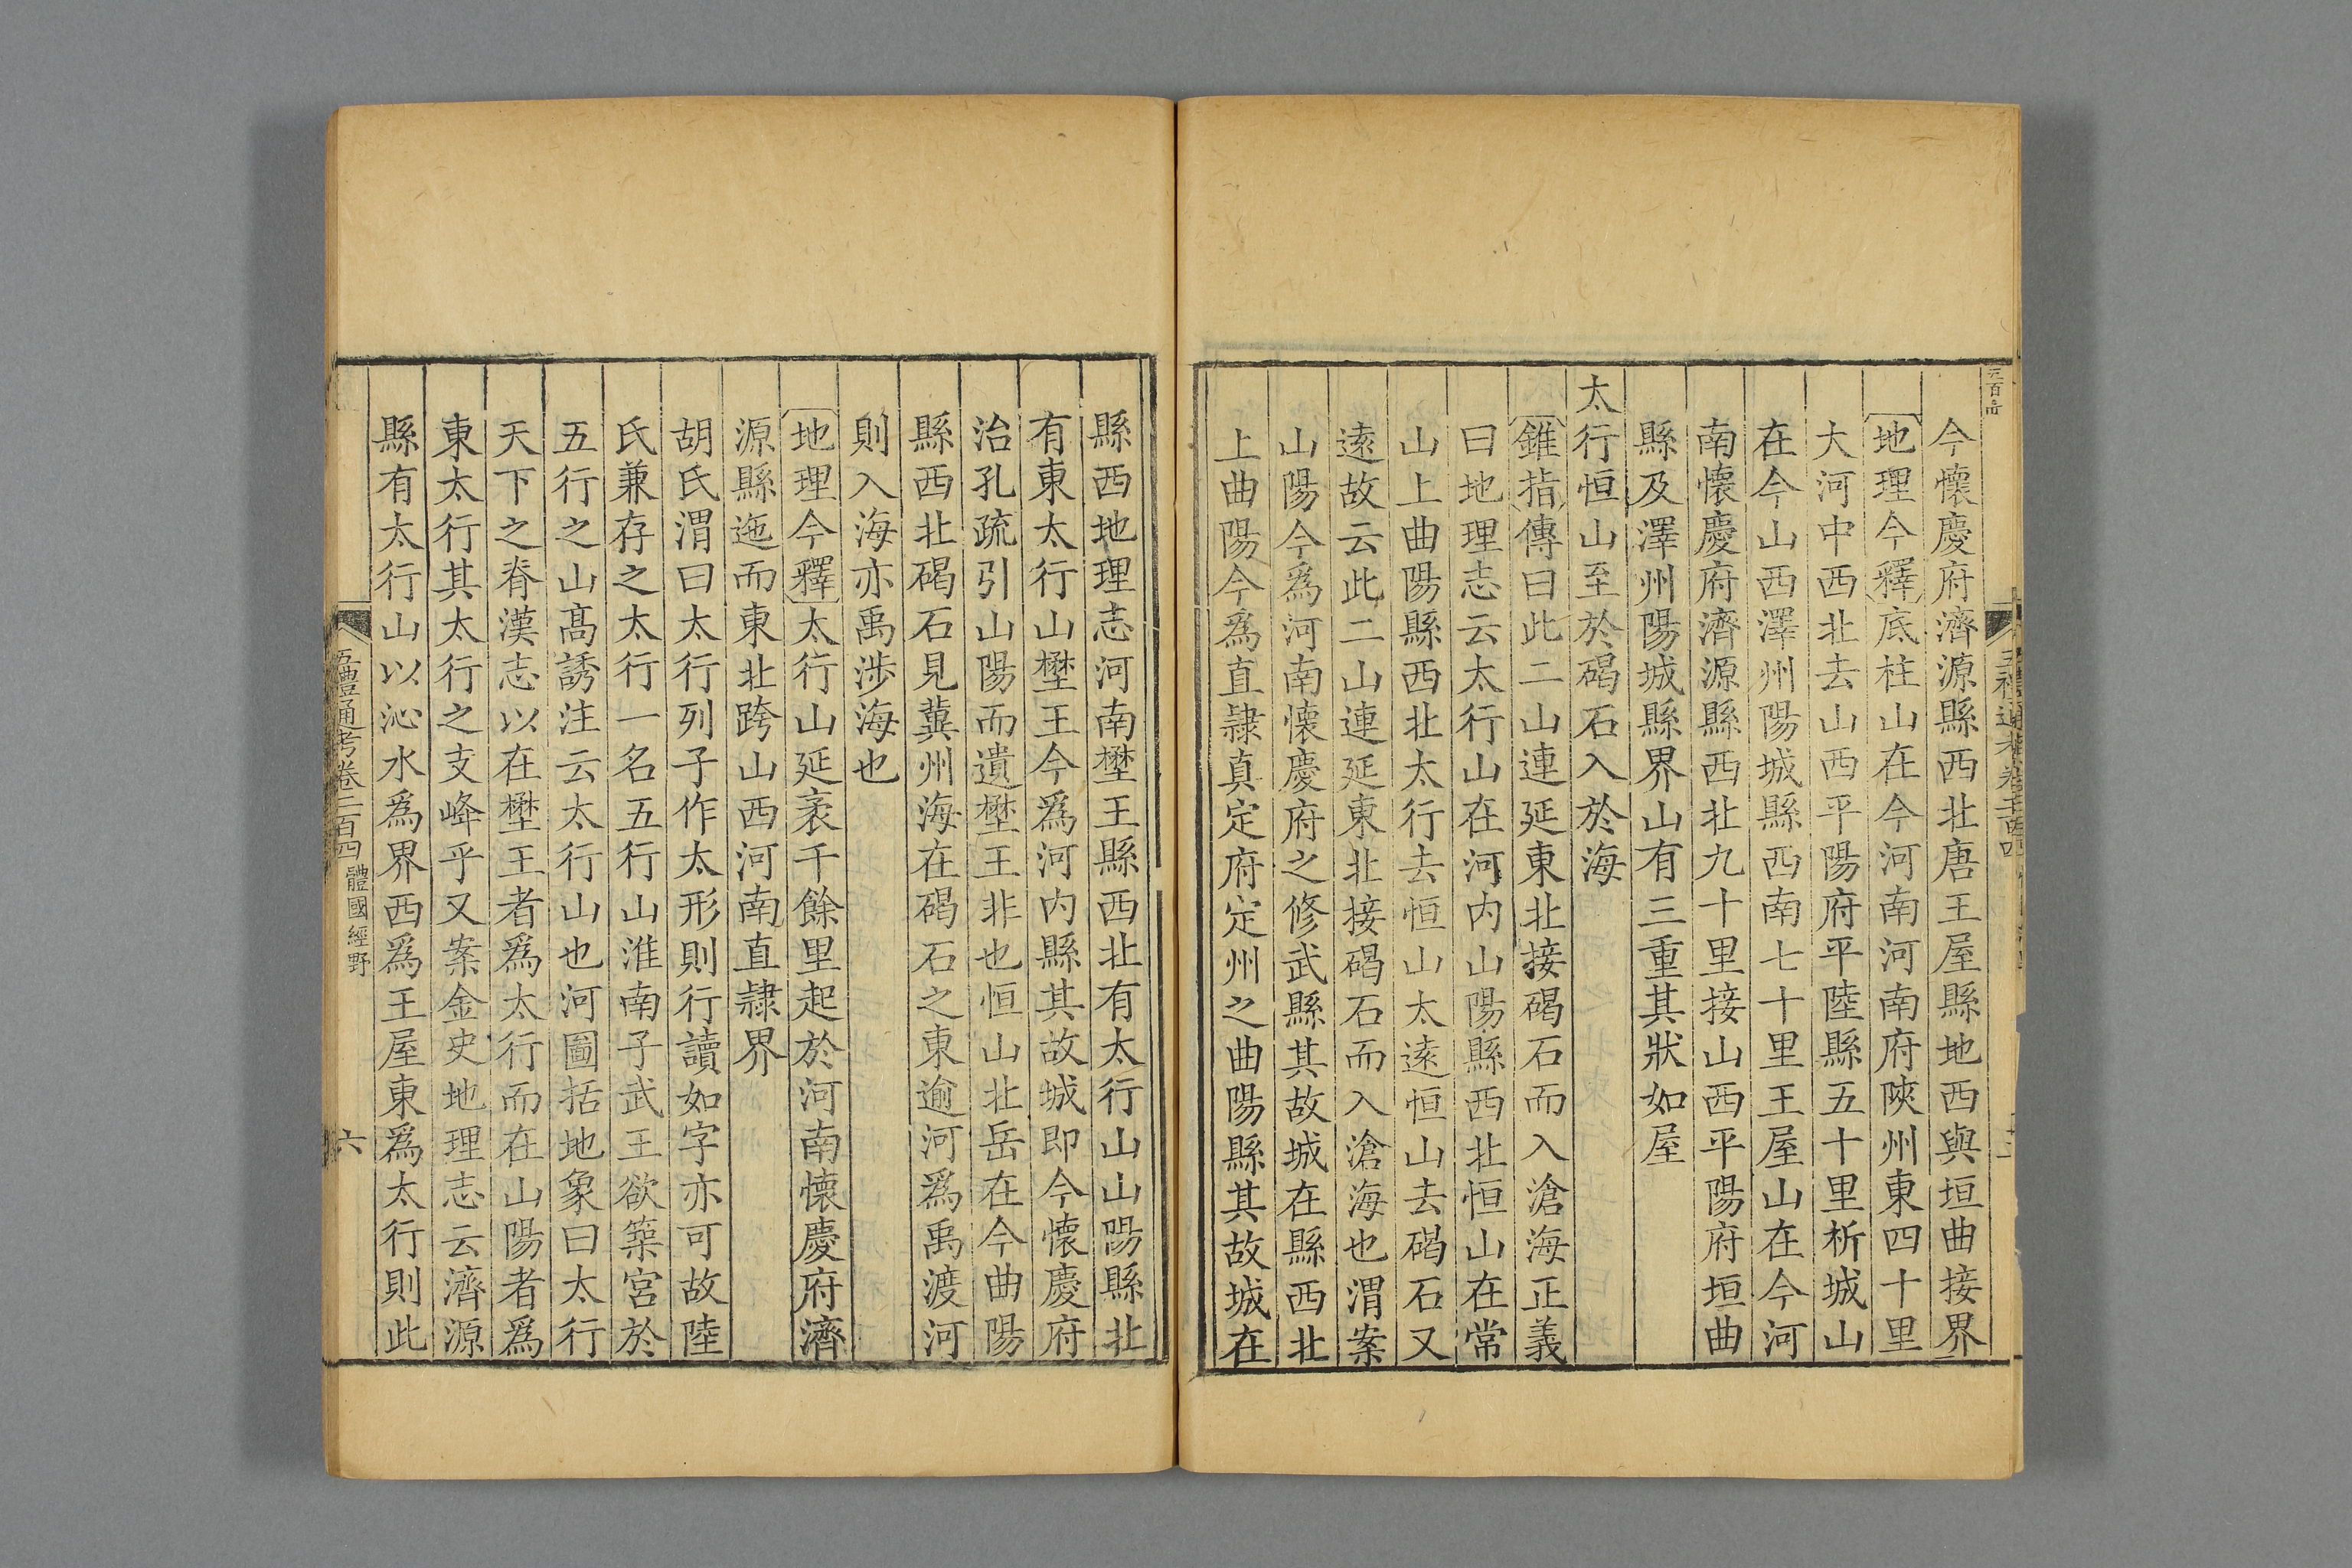 今懷慶府濟源縣西北唐王屋縣地西與垣曲接界
地理今釋底柱山在今河南河南府陝州東四十里
大河中西北去山西平陽府平陸縣五十里析城山
在今山西澤州陽城縣西南七十里王屋山在今河
南懷慶府濟源縣西北九十里接山西平陽府垣曲
縣及澤州陽城縣界山有三重其狀如屋
太行恒山至於碣石入於海
錐指傳曰此二山連延東北接碣石而入滄海正義
曰地理志云太行山在河內山陽縣西北恒山在常
山上曲陽縣西北太行去恒山太遠恒山去碣石又
遠故云此二山連延東北接碣石而入滄海也渭案
山陽今爲河南懷慶府之修武縣其故城在縣西北
上曲陽今爲直隸真定府定州之曲陽縣其故城在
縣西地理志河南壄王縣西北有太行山山陽縣北
有東太行山壄王今爲河內縣其故城即今懷慶府
治孔疏引山陽而遺壄王非也恒山北岳在今曲陽
縣西北碣石見冀州海在碣石之東逾河爲禹渡河
則入海亦禹涉海也
地理今釋太行山延袤千餘里起於河南懷慶府濟
源縣迤而東北跨山西河南直隸界
胡氏渭曰太行列子作太形則行讀如字亦可故陸
氏兼存之太行一名五行山淮南子武王欲築宮於
五行之山高誘注云太行山也河圖括地象曰太行
天下之脊漢志以在壄王者爲太行而在山陽者爲
東太行其太行之支峰乎又案金史地理志云濟源
縣有太行山以沁水爲界西爲王屋東爲太行則此
五禮通考卷二百四 體國經野 六